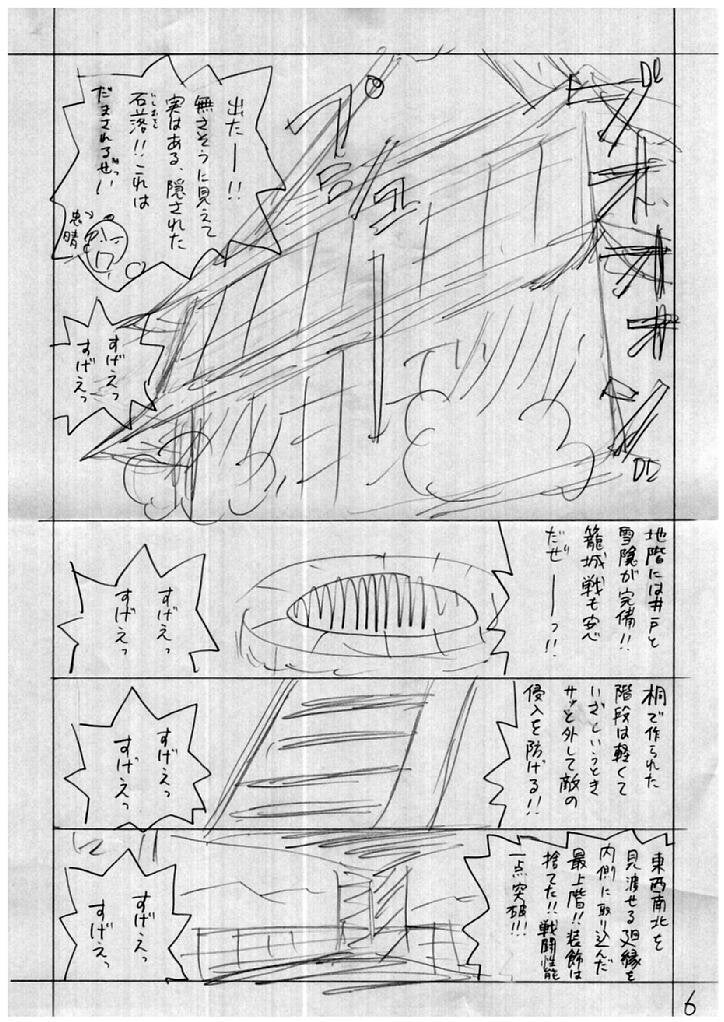 出たー!!
無さそうに見えて
実はある、隠された
石落!!これは
だまされるぜ!!
忠晴
すげえっ
すげえっ
地階には井戸と
雪隠が完備!!
籠城戦も安心
だぜーっ!!
すげえっ
すげえっ
桐で作られた
階段は軽くて
いざというとき
サッと外して敵の
侵入を防げる!!
すげえっ
すげえっ
東西南北を
見渡せる廻縁を
内側に取り込んだ
最上階!!装飾は
捨てた!!戦闘性能
一点突破!!!
すげえっ
すげえっ
6